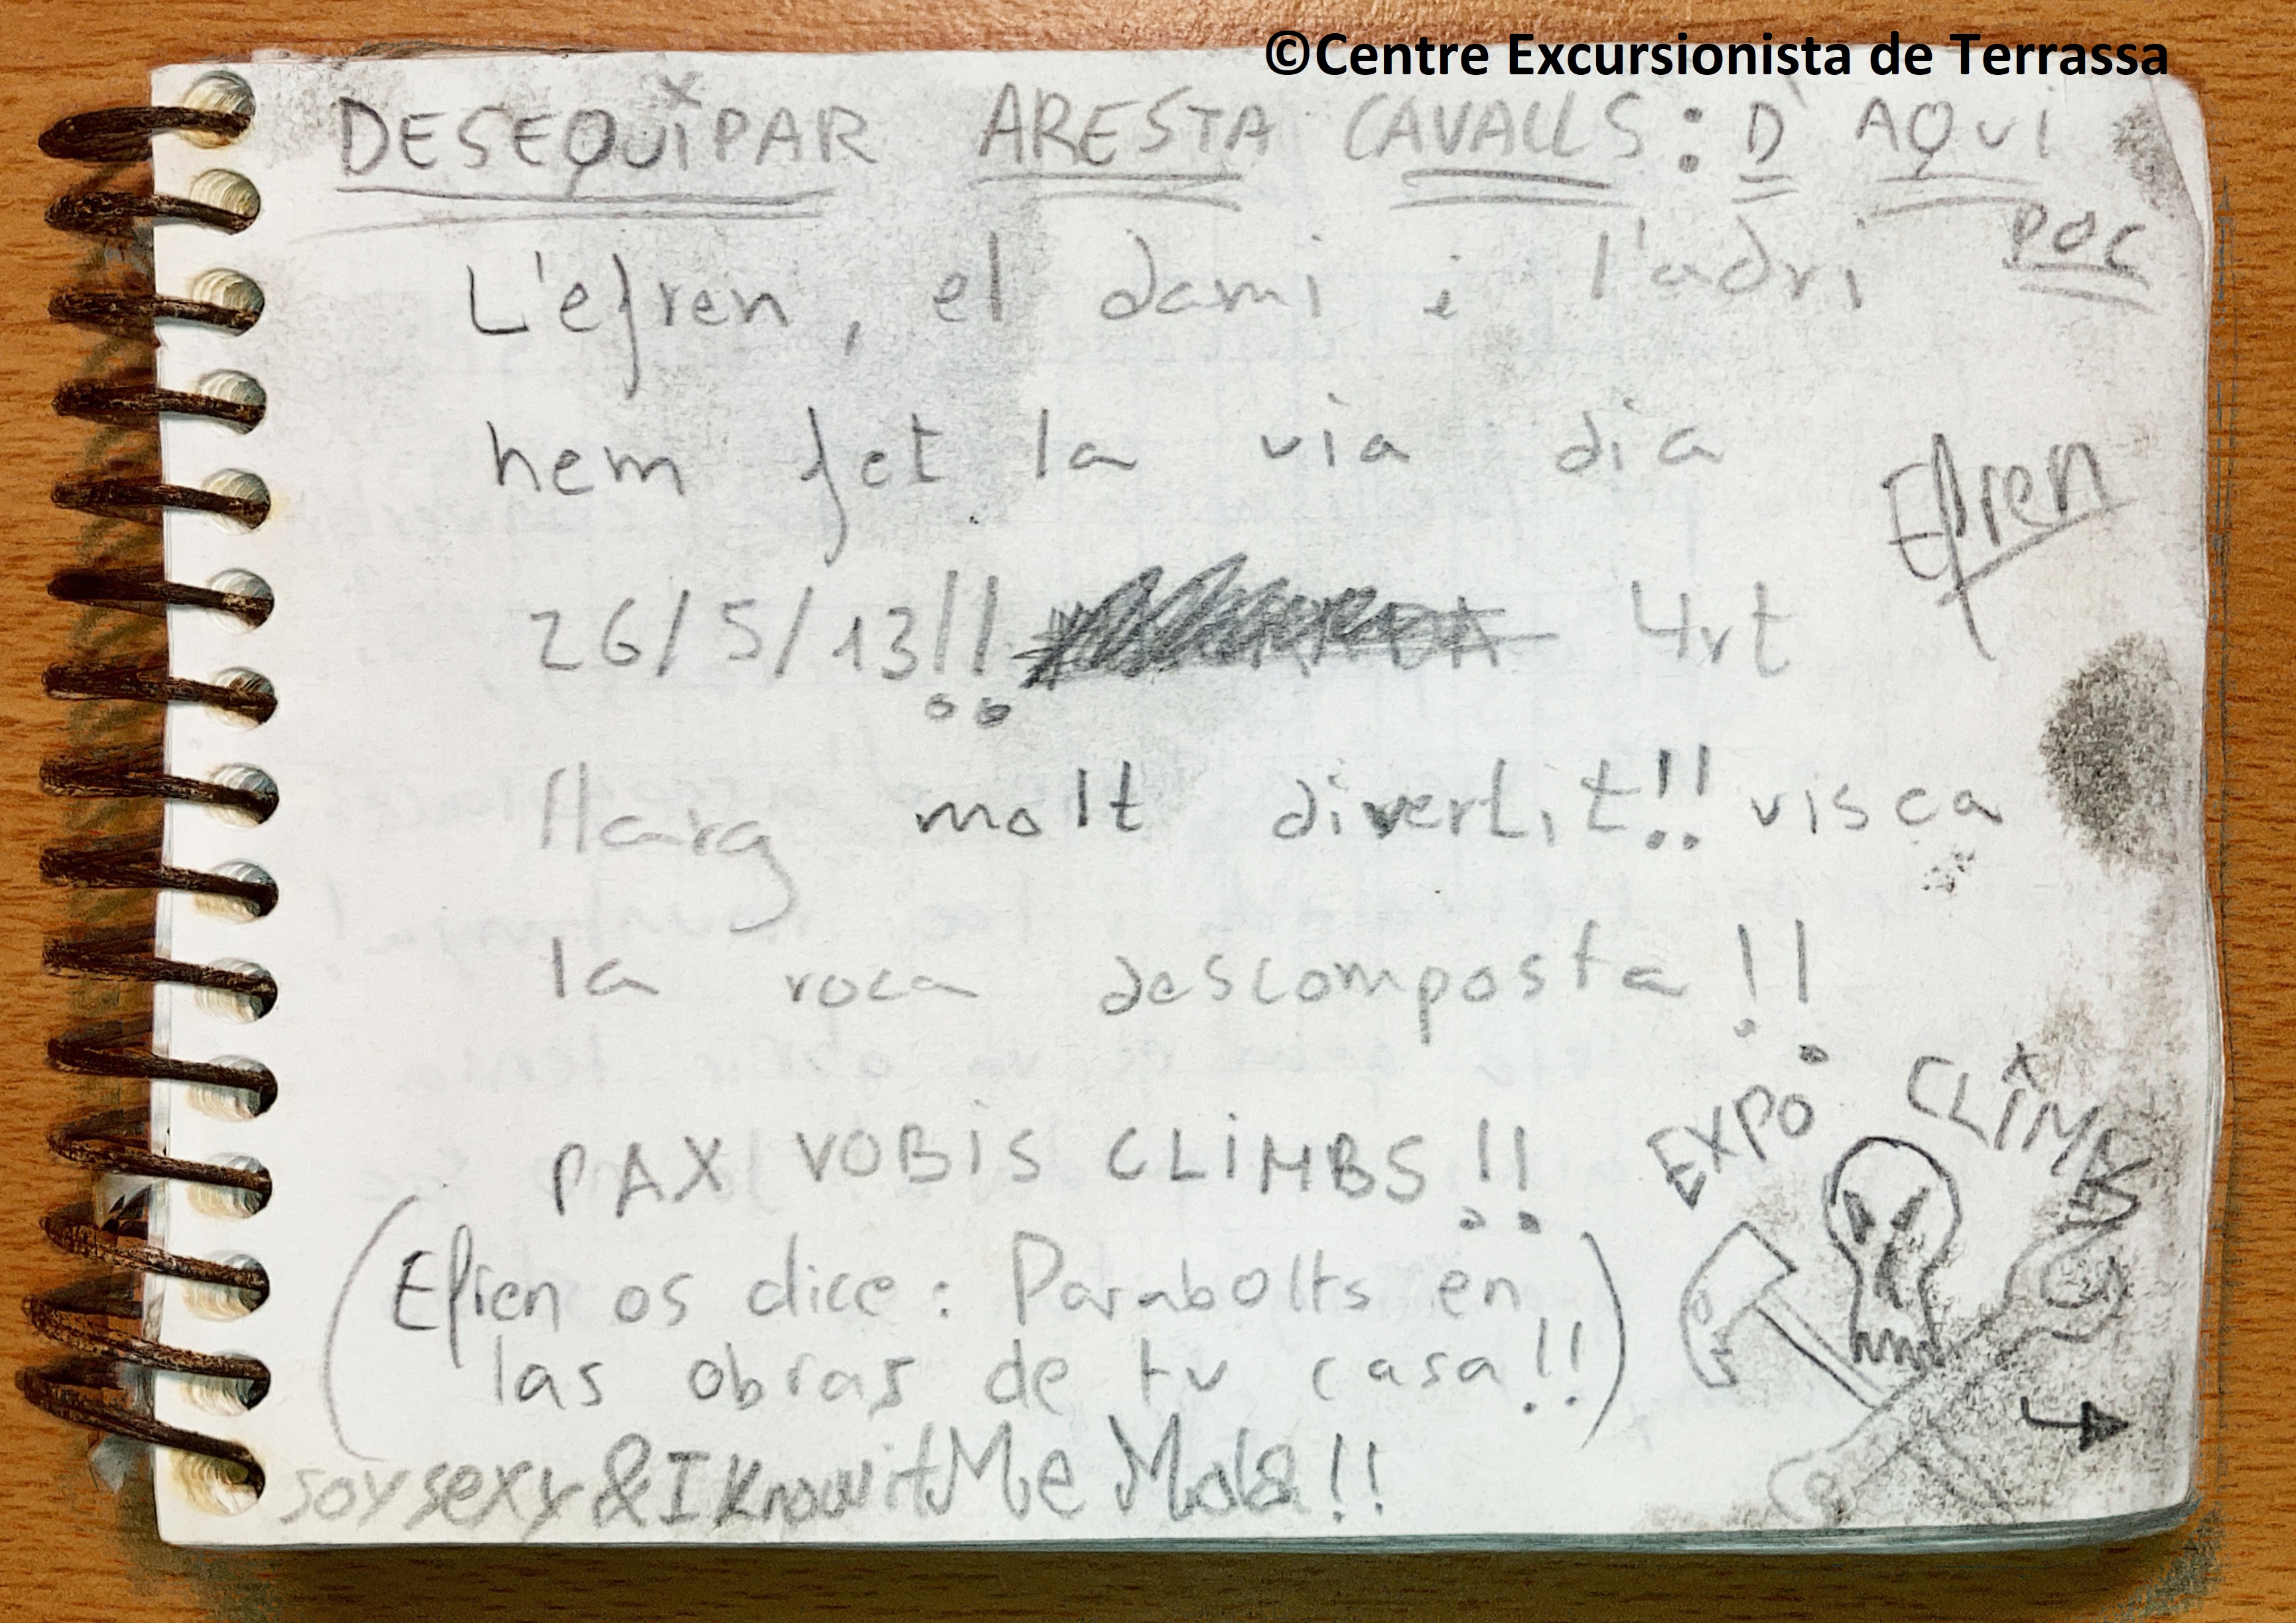 ©Centre Excursionista de Terrassa
DESEQUIPAR ARESTA CAVALLS: D'AQUI
POC
L'efren, el dami i l'adri
hem fet la via dia
Efren
26/5/13!! 4rt
llarg molt divertit!! visca
la roca descomposta!!
EXPO CLIMB
PAX VOBIS CLIMBS!!
(Efren os dice: Parabolts en
las obras de tu casa!!)
soy sexy & I Know it Me Mola!!